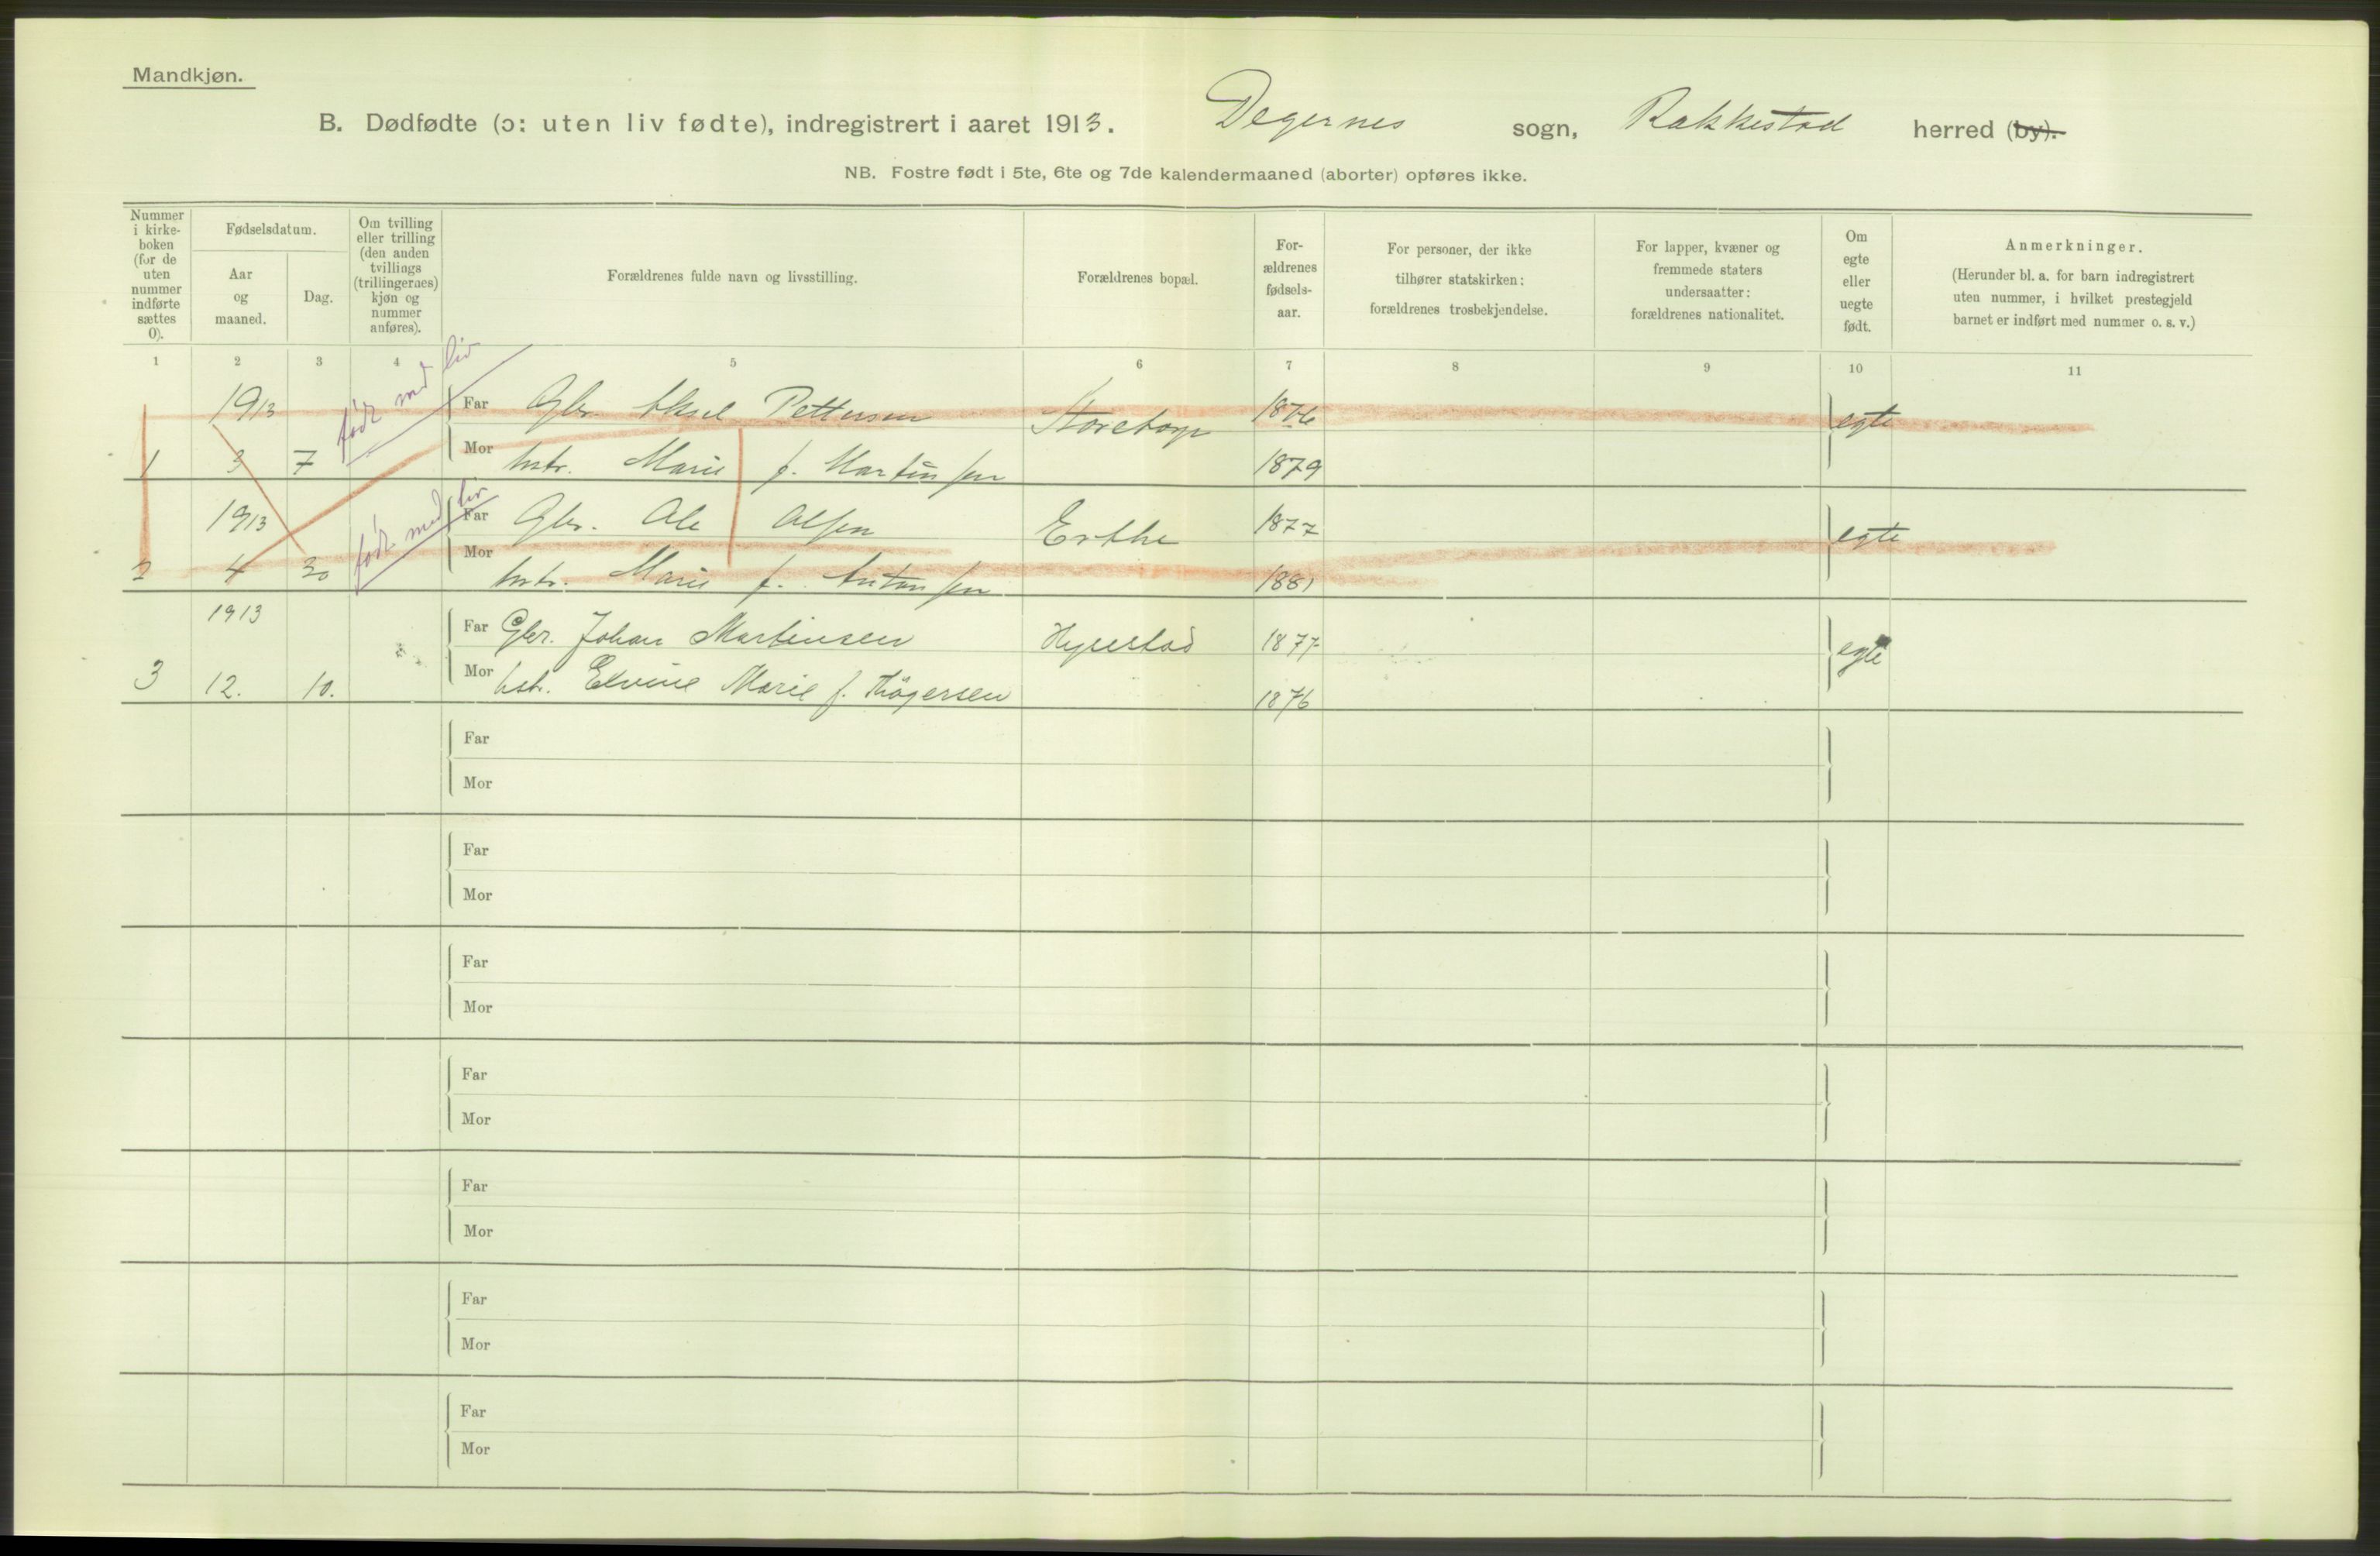 Mandkjøn.
B. Dødfødte (ɔ: uten liv fødte), indregistrert i aaret 1913. Degernes sogn, Rakkestad herred (by).
NB. Fostre født i 5te, 6te og 7de kalendermaaned (aborter) opføres ikke.
Nummer
i kirke-
boken
(for de
uten
nummer
indførte
sættes
0).
Fødselsdatum.
Aar
og
maaned.
Dag.
Om tvilling
eller trilling
(den anden
tvillings
(trillingernes)
kjøn og
nummer
anføres).
Forældrenes fulde navn og livsstilling.
Forældrenes bopæl.
For-
ældrenes
fødsels-
aar.
For personer, der ikke
tilhører statskirken:
forældrenes trosbekjendelse.
For lapper, kvæner og
fremmede staters
undersaatter:
forældrenes nationalitet.
Om
egte
eller
uegte
født.
Anmerkninger.
(Herunder bl. a. for barn indregistrert
uten nummer, i hvilket prestegjeld
barnet er indført med nummer o. s. v.)
1 2 3 4 5 6 7 8 9 10 11
født med liv
1913 Far Gbr. Aksel Pettersen Storetorp 1876 egte
1 3 7 Mor hstr. Marie f. Martinsen 1879
født med liv
1913 Far Gbr. Ole Olsen Erthe 1877 egte
2 4 30 Mor hstr. Marie f. Antonsen 1881
1913 Far Gbr. Johan Martinsen 1877 egte
3 12. 10. Mor hst. Elvine Marie f. Thøgersen 1876
Far
Mor
Far
Mor
Far
Mor
Far
Mor
Far
Mor
Far
Mor
Far
Mor